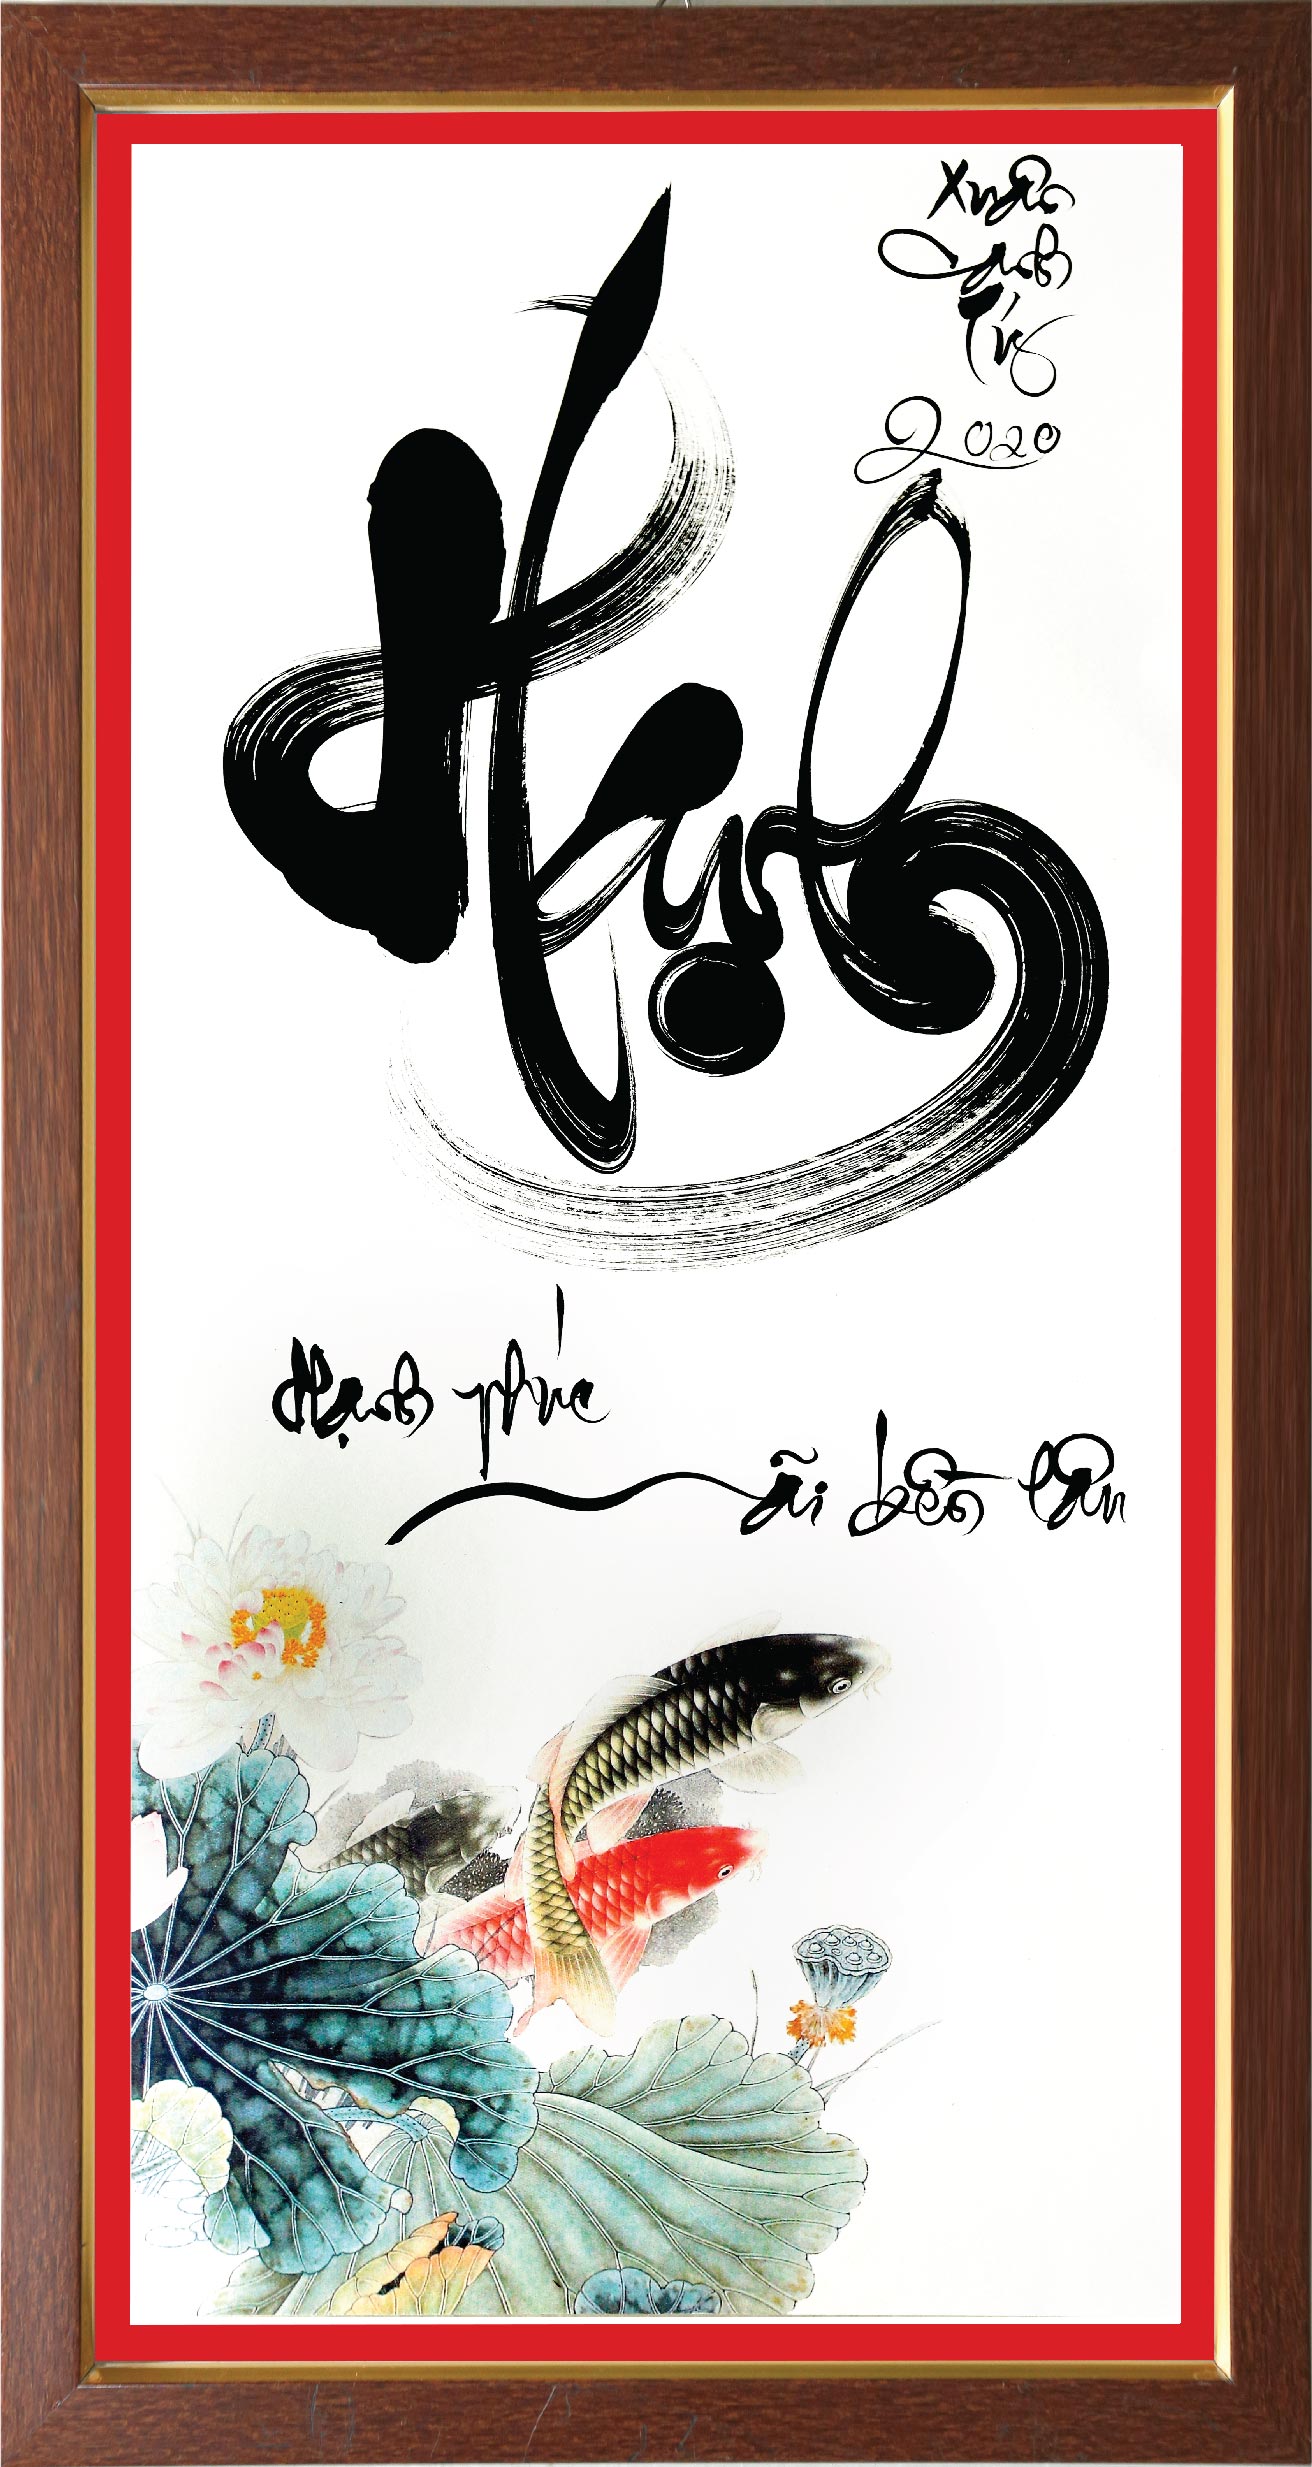 Xuân
Canh
Tý
2020
Hạnh
Hạnh phúc
mãi bền lâu